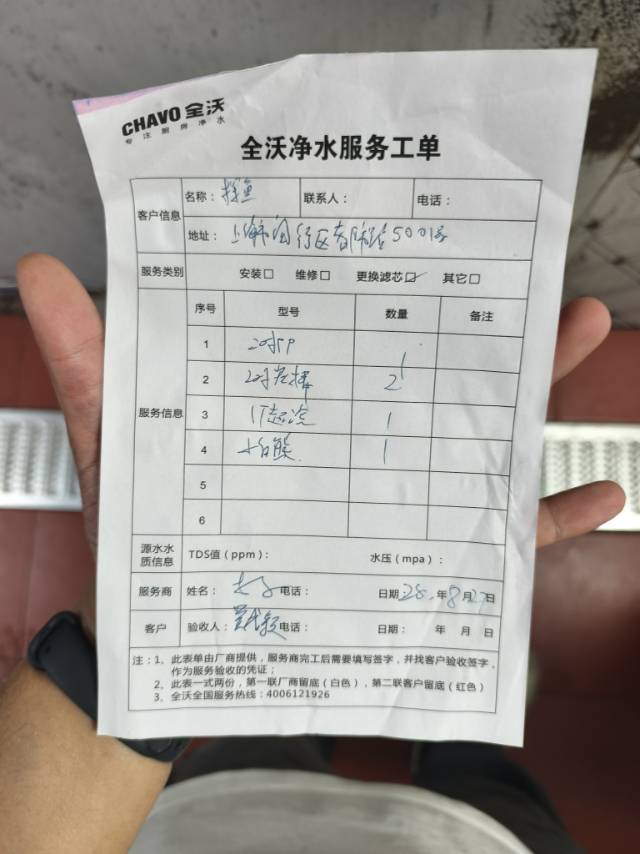 CHAVO 全沃
专注厨房净水
全沃净水服务工单
客户信息 名称： 联系人： 电话：
地址：上海市闵行区春申路5001号
服务类别 安装□ 维修□ 更换滤芯□✓ 其它□
服务信息 序号 型号 数量 备注
1 20寸PP 1
2 20寸 2
3 1
4 1
5
6
源水水质信息 TDS值（ppm）： 水压（mpa）：
服务商 姓名： 电话： 日期： 年8月27日
客户 验收人： 电话： 日期： 年 月 日
注：1、此表单由厂商提供，服务商完工后需要填写签字，并找客户验收签字，
作为服务验收的凭证；
2、此表一式两份，第一联厂商留底（白色），第二联客户留底（红色）
3、全沃全国服务热线：4006121926